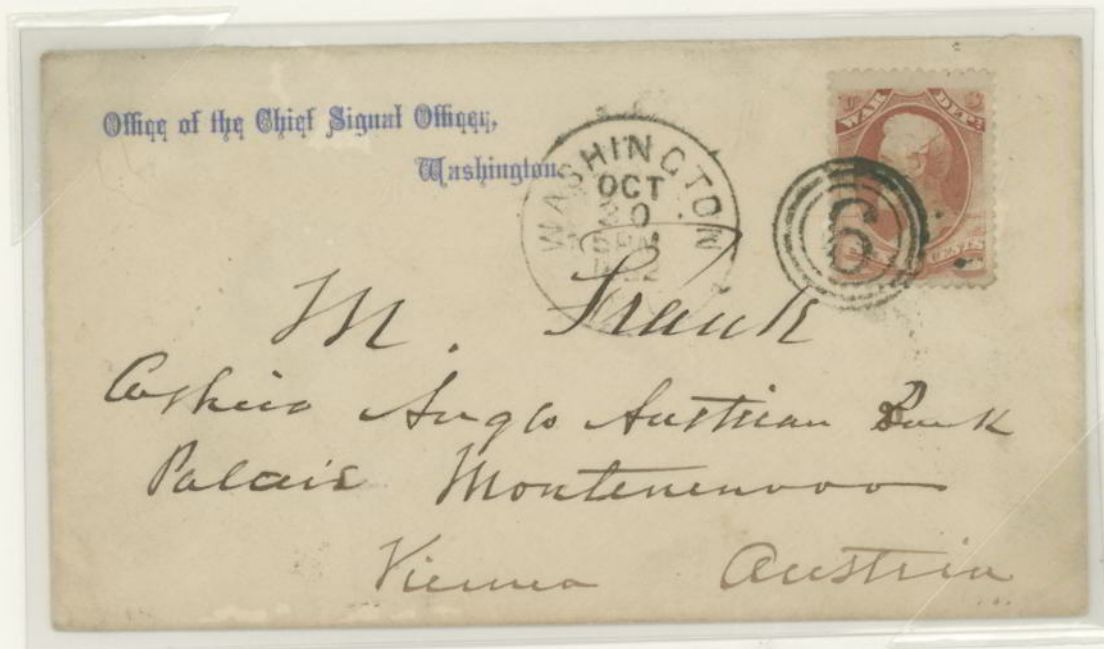 Office of the Chief Signal Officer,
Washington.
WASHINGTON
OCT
30
PM
U.S. WAR DEPT.
6
CENTS
M. Frank
Cashier Anglo Austrian Bank
Palais Montenenvoo
Vienna Austria